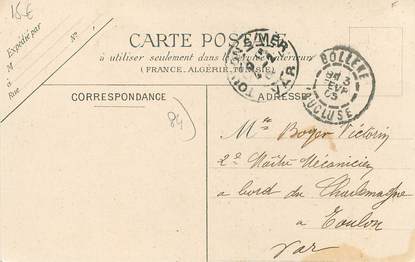 15€
Expédié par
M
à
Rue
CARTE POSTALE
à utiliser seulement dans le Service intérieur
(FRANCE, ALGÉRIE, TUNISIE)
TOULON S MER
VAR
BOLLENE
3
FEVR
05
VAUCLUSE
CORRESPONDANCE
ADRESSE
84
Mr Boyer Victorin
2e Maître Mécanicien
à bord du Charlemagne
à Toulon
Var